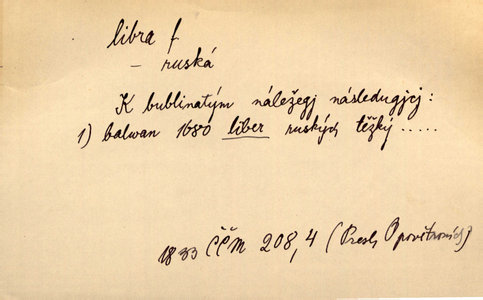 libra f
– ruská
K bublinatým náležegj následugjcj:
1) balwan 1680 liber ruských těžký.....
1833 ČČM 208,4 (Presl, O povětroních)